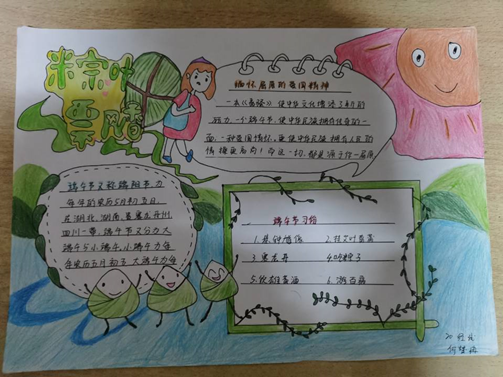 粽叶
飘香
缅怀屈原的爱国精神
一本《离骚》使中华文化增添了新的
魅力,一个端午节,使中华民族拥有优良的一
面,一种爱国情怀,更使中华民族拥有人民的
情操更高尚!而这一切,都是源于你—屈原
端午节又称端阳节,为
每年的农历5月初五日
在湖北、湖南、贵州、
四川一带,端午节又分为大
端午与小端午,小端午为每
年农历五月初五,大端午为每
端午节习俗
1.悬钟馗像
2.挂艾叶菖蒲
3.赛龙舟
4.吃粽子
5.饮雄黄酒
6.游百病